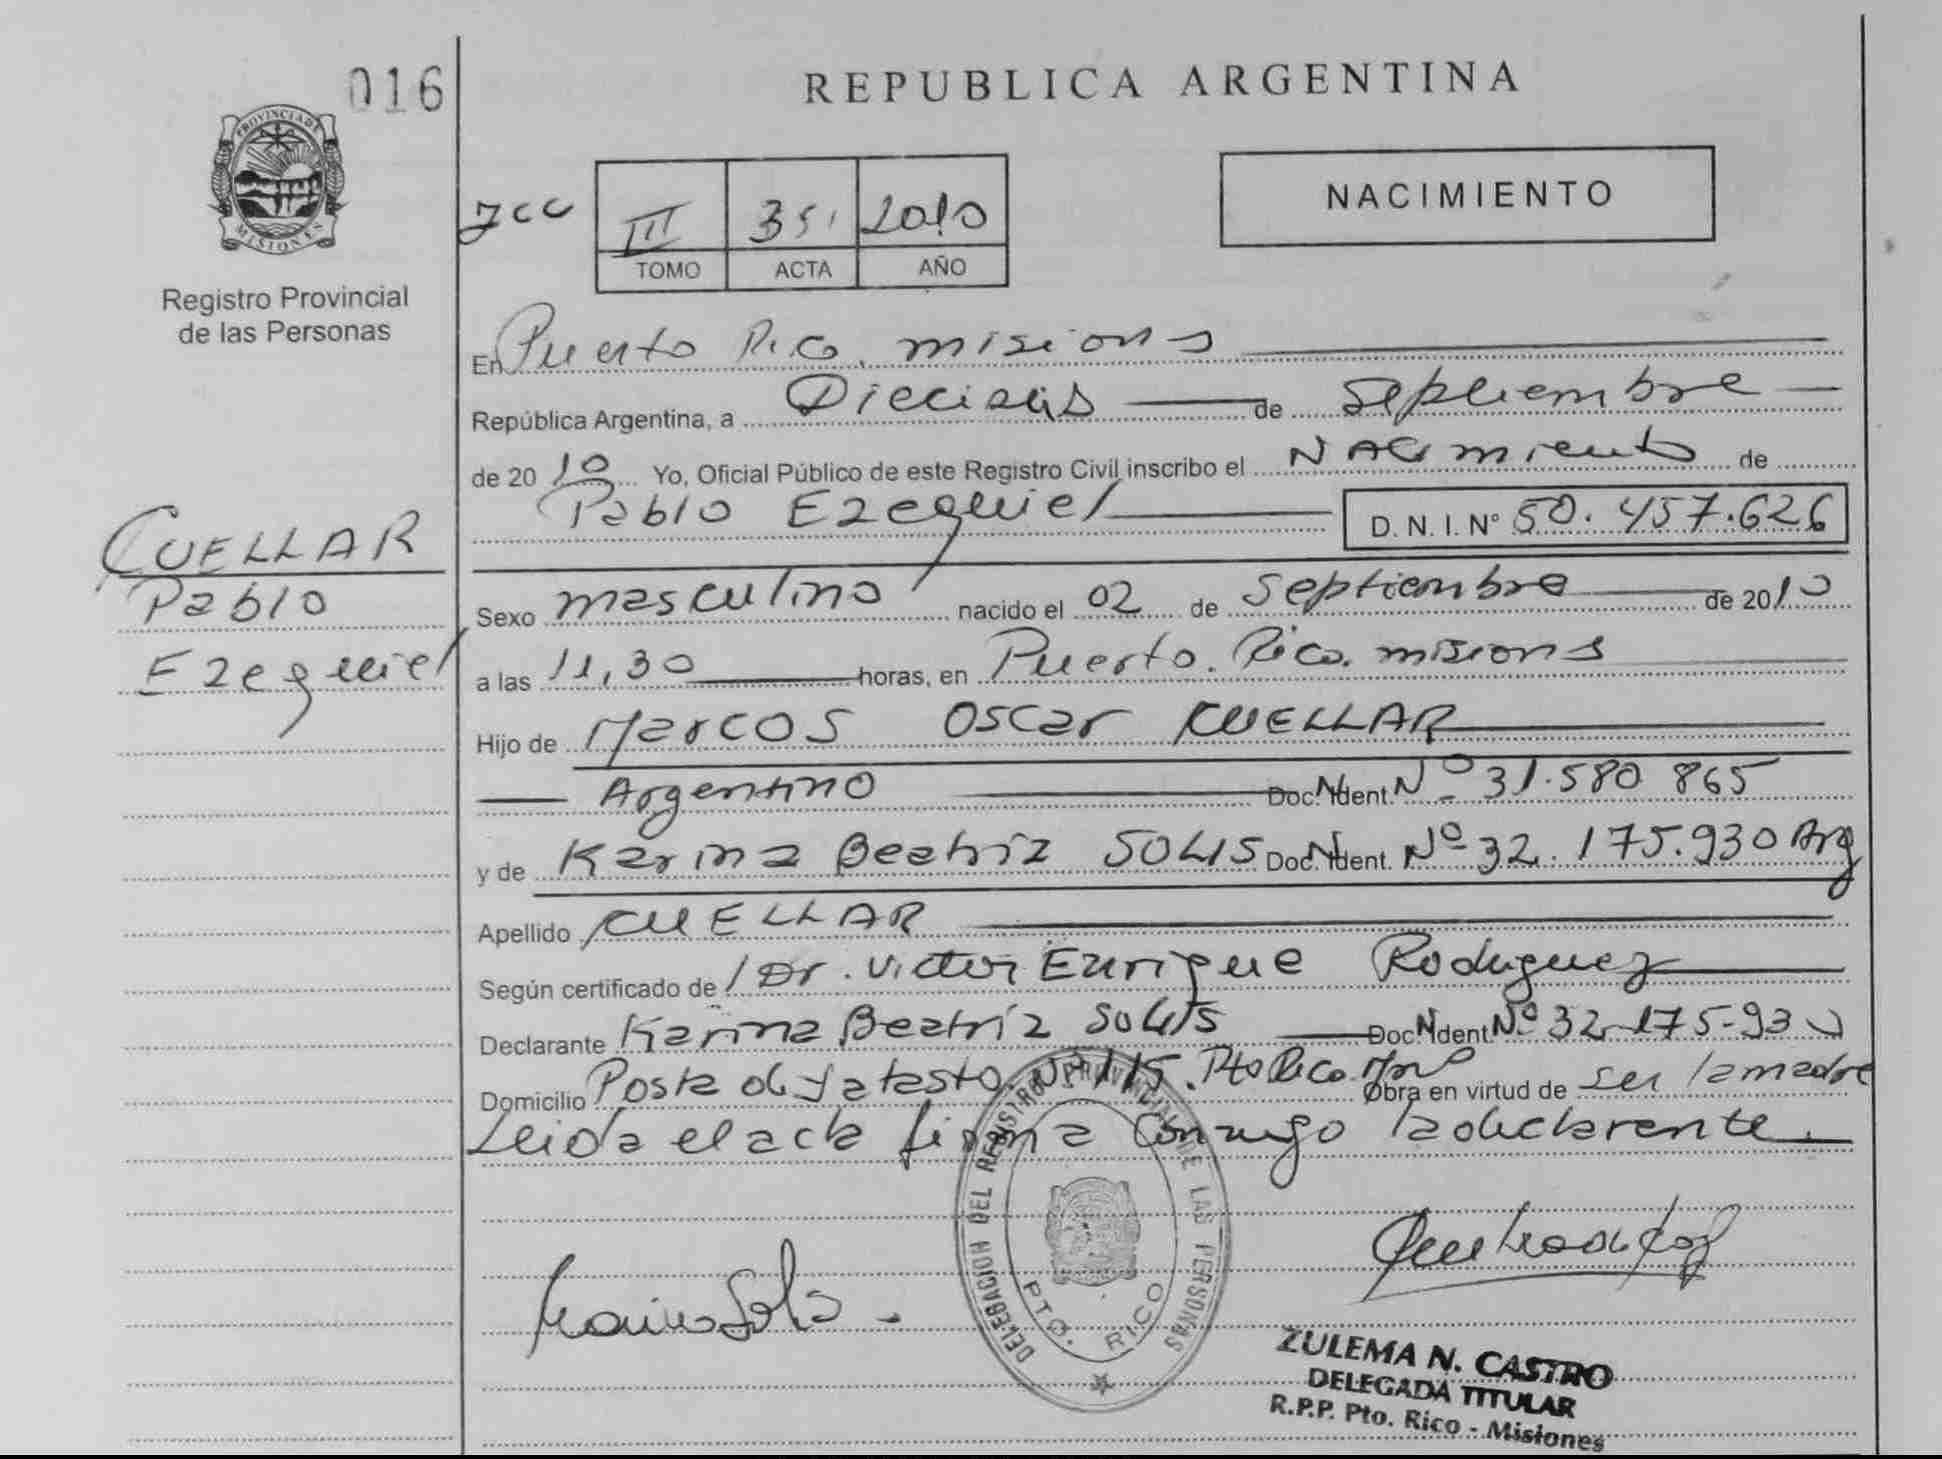 016
REPUBLICA ARGENTINA
PROVINCIA DE
MISIONES
Registro Provincial
de las Personas
NACIMIENTO
III 351 2010
TOMO ACTA AÑO
En Puerto Rico. misiones
República Argentina, a Dieciséis de septiembre
de 2010 Yo, Oficial Público de este Registro Civil inscribo el Nacimiento de
Pablo Ezequiel D. N. I. N° 50.457.626
CUELLAR
Pablo
Ezequiel
Sexo masculino nacido el 02 de septiembre de 2010
a las 11,30 horas, en Puerto. Rico. misiones
Hijo de Marcos Oscar CUELLAR
Argentino Doc. Ident. Nº 31.580 865
y de Karina Beatriz SOLIS Doc. Ident. Nº 32.175.930 Arg
Apellido CUELLAR
Según certificado de Dr. Victor Enrique Rodriguez
Declarante Karina Beatriz SOLIS Doc. Ident. Nº 32-175-930
Domicilio Posta de Yatasto. Nº 115. Pto Rico. Obra en virtud de ser la madre
Leida el acta firma conmigo la declarante.
DELEGACION DEL REGISTRO PROVINCIAL DE LAS PERSONAS
PTO. RICO
ZULEMA N. CASTRO
DELEGADA TITULAR
R.P.P. Pto. Rico - Misiones